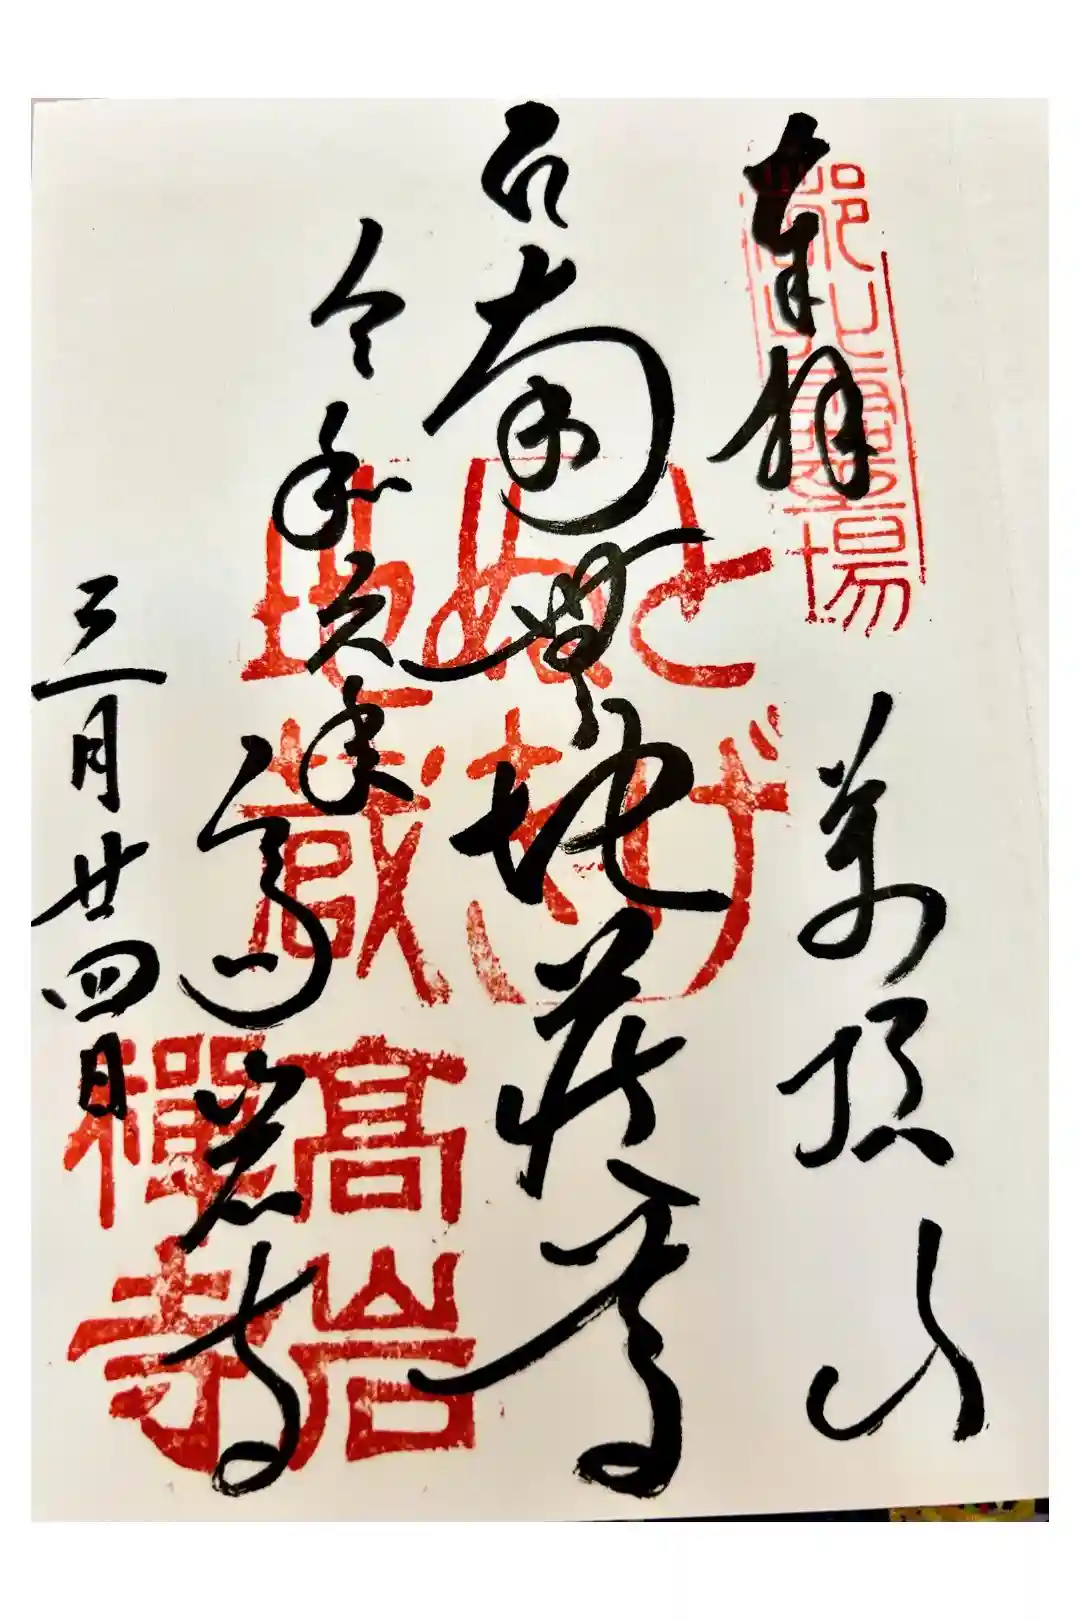 奉拝
萬頂山
南無地蔵尊
令和六年
三月廿四日
高岩寺
とげぬき地蔵
髙岩禪寺